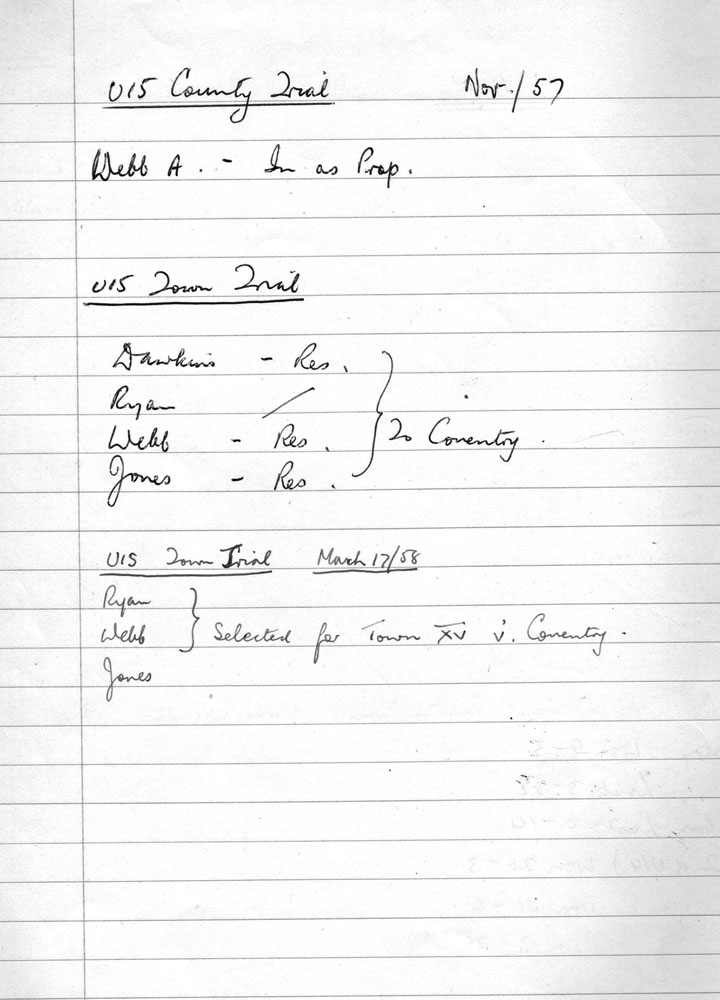 U15 County Trial Nov./57
Webb A. - In as Prop.
U15 Town Trial
Dawkins - Res.
Ryan /
Webb - Res.
Jones - Res.
} To Coventry.
U15 Town Trial March 17/58
Ryan
Webb
} Selected for Town XV v. Coventry.
Jones